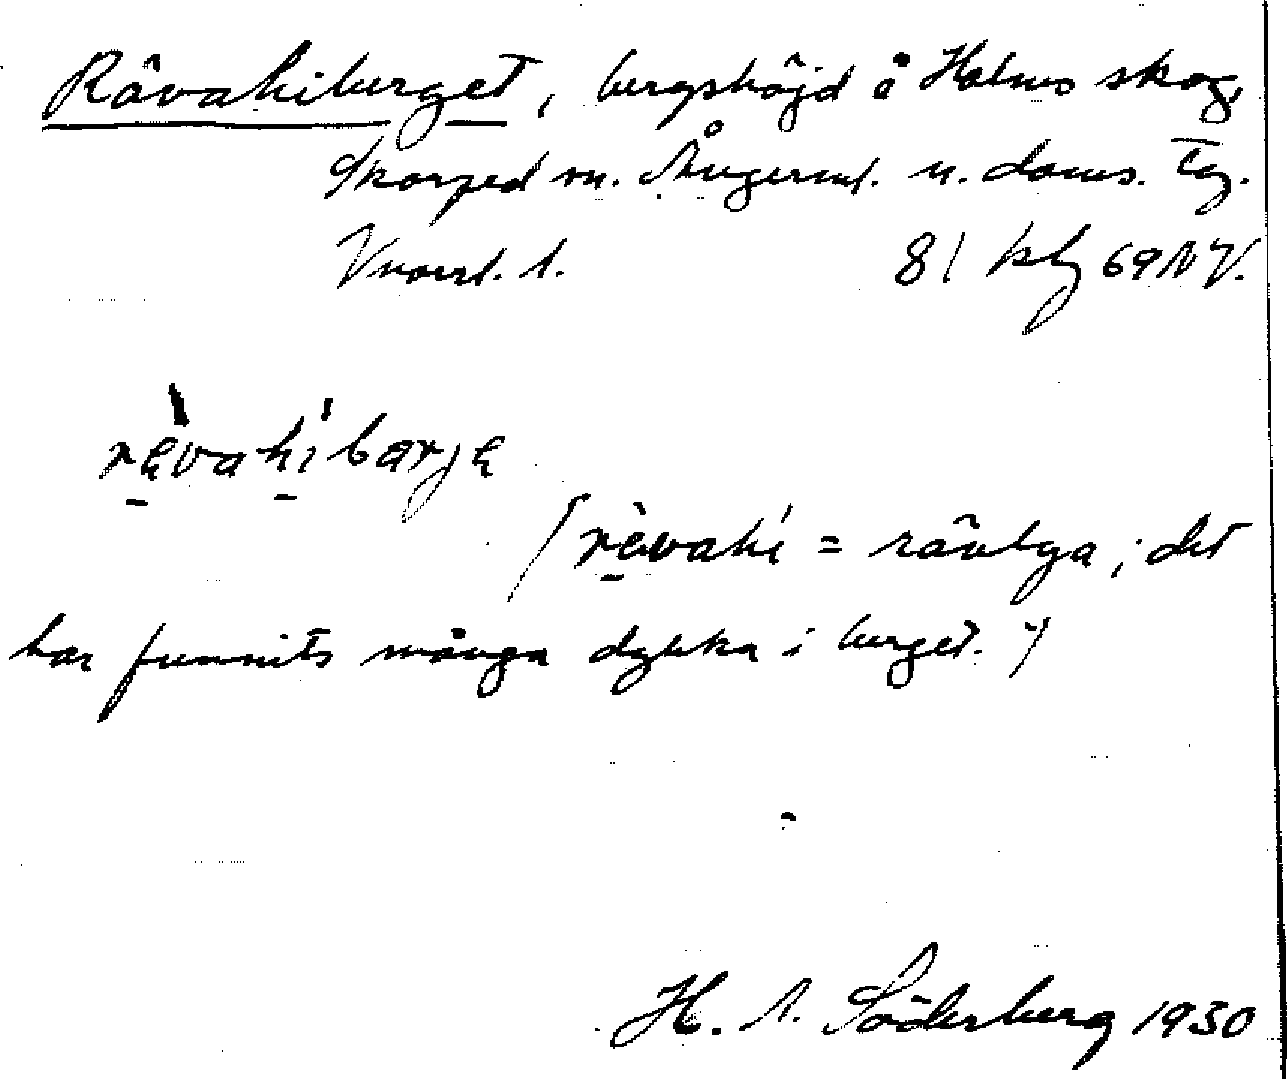 Rävahiberget, bergshöjd å Holms skog,
Skorped sn. Ångerml. n. doms. tg.
Vnorrl. l. 81 kbl 69 NV.
rävahibarje
(rävahi = rävlya; det
har funnits många dylika i berget.)
H. A. Söderberg 1930